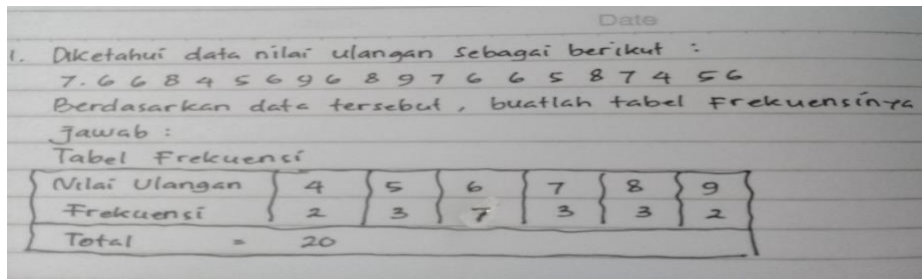 Date
1. Diketahui data nilai ulangan sebagai berikut :
7. 6 6 8 4 5 6 9 6 8 9 7 6 6 5 8 7 4 5 6
Berdasarkan data tersebut, buatlah tabel Frekuensinya
Jawab :
Tabel Frekuensi
Nilai Ulangan 4 5 6 7 8 9
Frekuensi 2 3 7 3 3 2
Total = 20